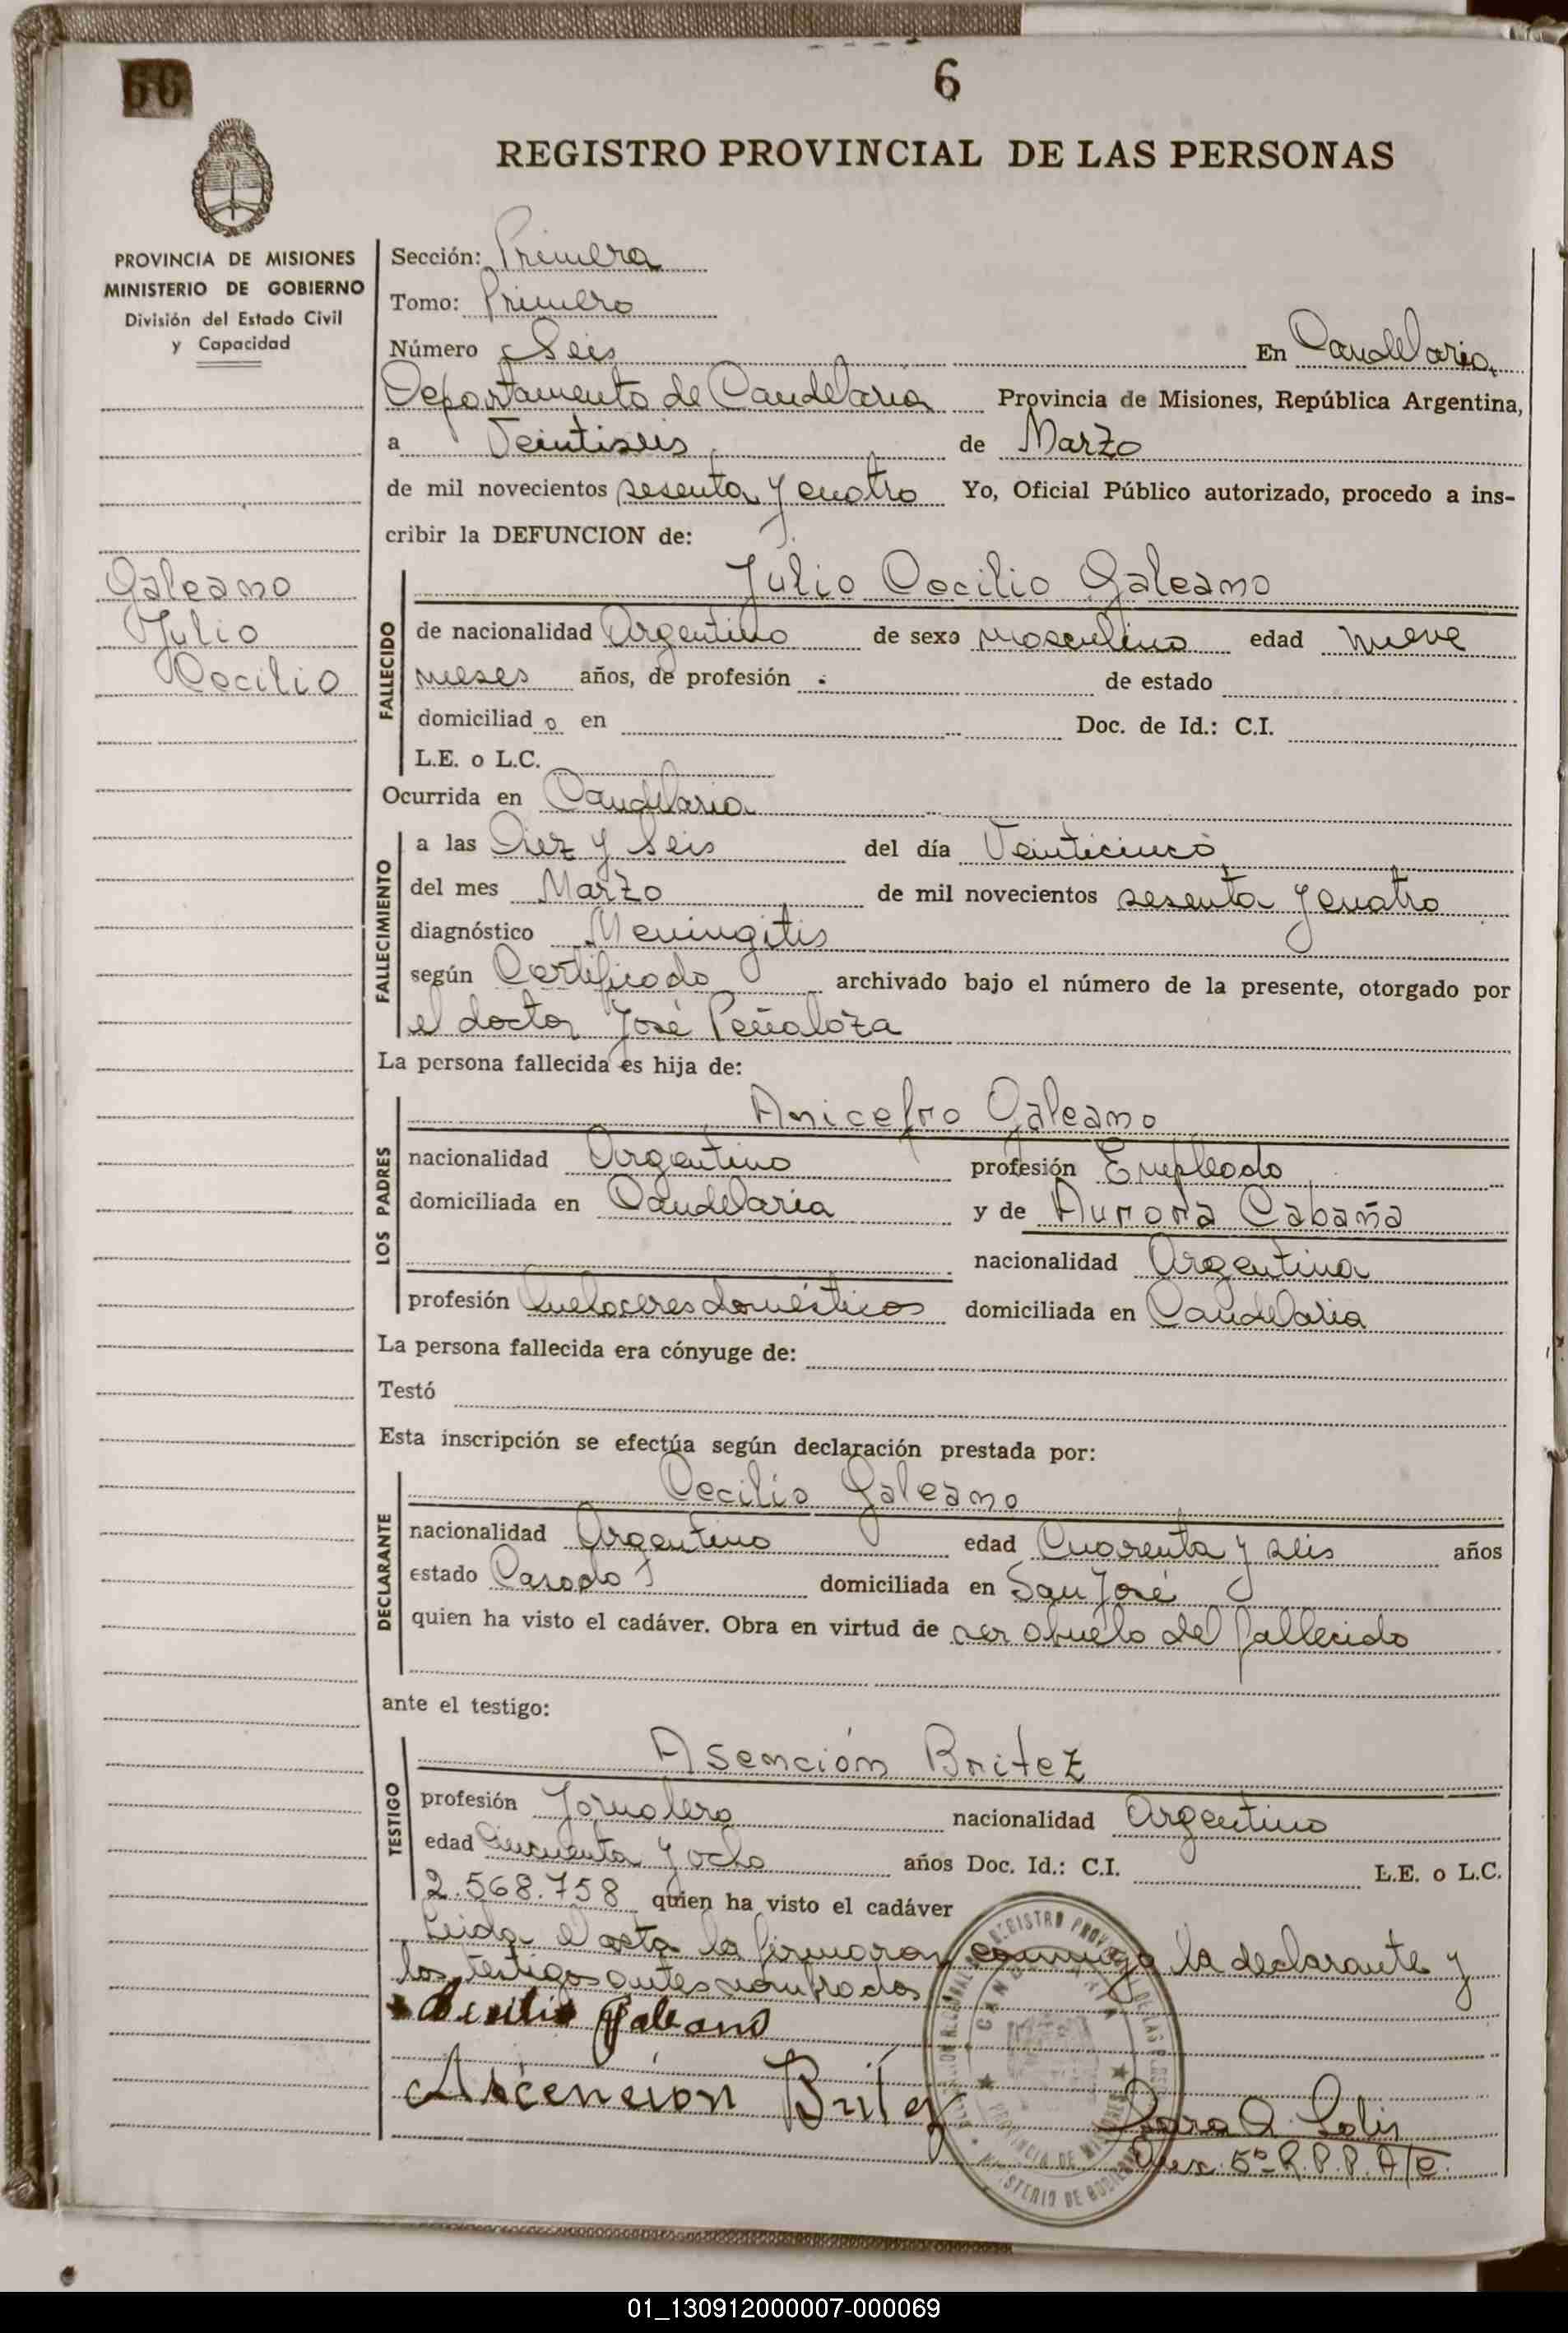 66
6
REGISTRO PROVINCIAL DE LAS PERSONAS
PROVINCIA DE MISIONES
MINISTERIO DE GOBIERNO
División del Estado Civil
y Capacidad
Sección: Primera
Tomo: Primero
Número Seis En Candelaria,
Departamento de Candelaria Provincia de Misiones, República Argentina,
a Veintiseis de Marzo
de mil novecientos sesenta y cuatro Yo, Oficial Público autorizado, procedo a ins-
cribir la DEFUNCION de:
Galeano
Julio
Cecilio
FALLECIDO
Julio Cecilio Galeano
de nacionalidad Argentino de sexo masculino edad nueve
meses años, de profesión de estado
domiciliado en Doc. de Id.: C.I.
L.E. o L.C.
Ocurrida en Candelaria
FALLECIMIENTO
a las Diez y Seis del día Veinticinco
del mes Marzo de mil novecientos sesenta y cuatro
diagnóstico Meningitis
según Certificado archivado bajo el número de la presente, otorgado por
el doctor José Peñaloza
La persona fallecida es hija de:
LOS PADRES
Anicefro Galeano
nacionalidad Argentino profesión Empleado
domiciliada en Candelaria y de Aurora Cabaña
nacionalidad Argentina
profesión Quehaceres domésticos domiciliada en Candelaria
La persona fallecida era cónyuge de:
Testó
Esta inscripción se efectúa según declaración prestada por:
DECLARANTE
Cecilio Galeano
nacionalidad Argentino edad Cuarenta y seis años
estado Casado domiciliada en San José
quien ha visto el cadáver. Obra en virtud de ser abuelo del fallecido
ante el testigo:
TESTIGO
Asención Britez
profesión Jornalero nacionalidad Argentino
edad Cincuenta y ocho años Doc. Id.: C.I. L.E. o L.C.
2.568.758 quien ha visto el cadáver
Leida el acta la firmaron conmigo la declarante y
los testigos antes nombrados
Cecilio Galeano
Ascencion Britez
Sara A. Solis
5ª R.P.P. A/C.
REGISTRO PROVINCIAL DE LAS PERSONAS
CANDELARIA
PROVINCIA DE MISIONES
MINISTERIO DE GOBIERNO
01_130912000007-000069